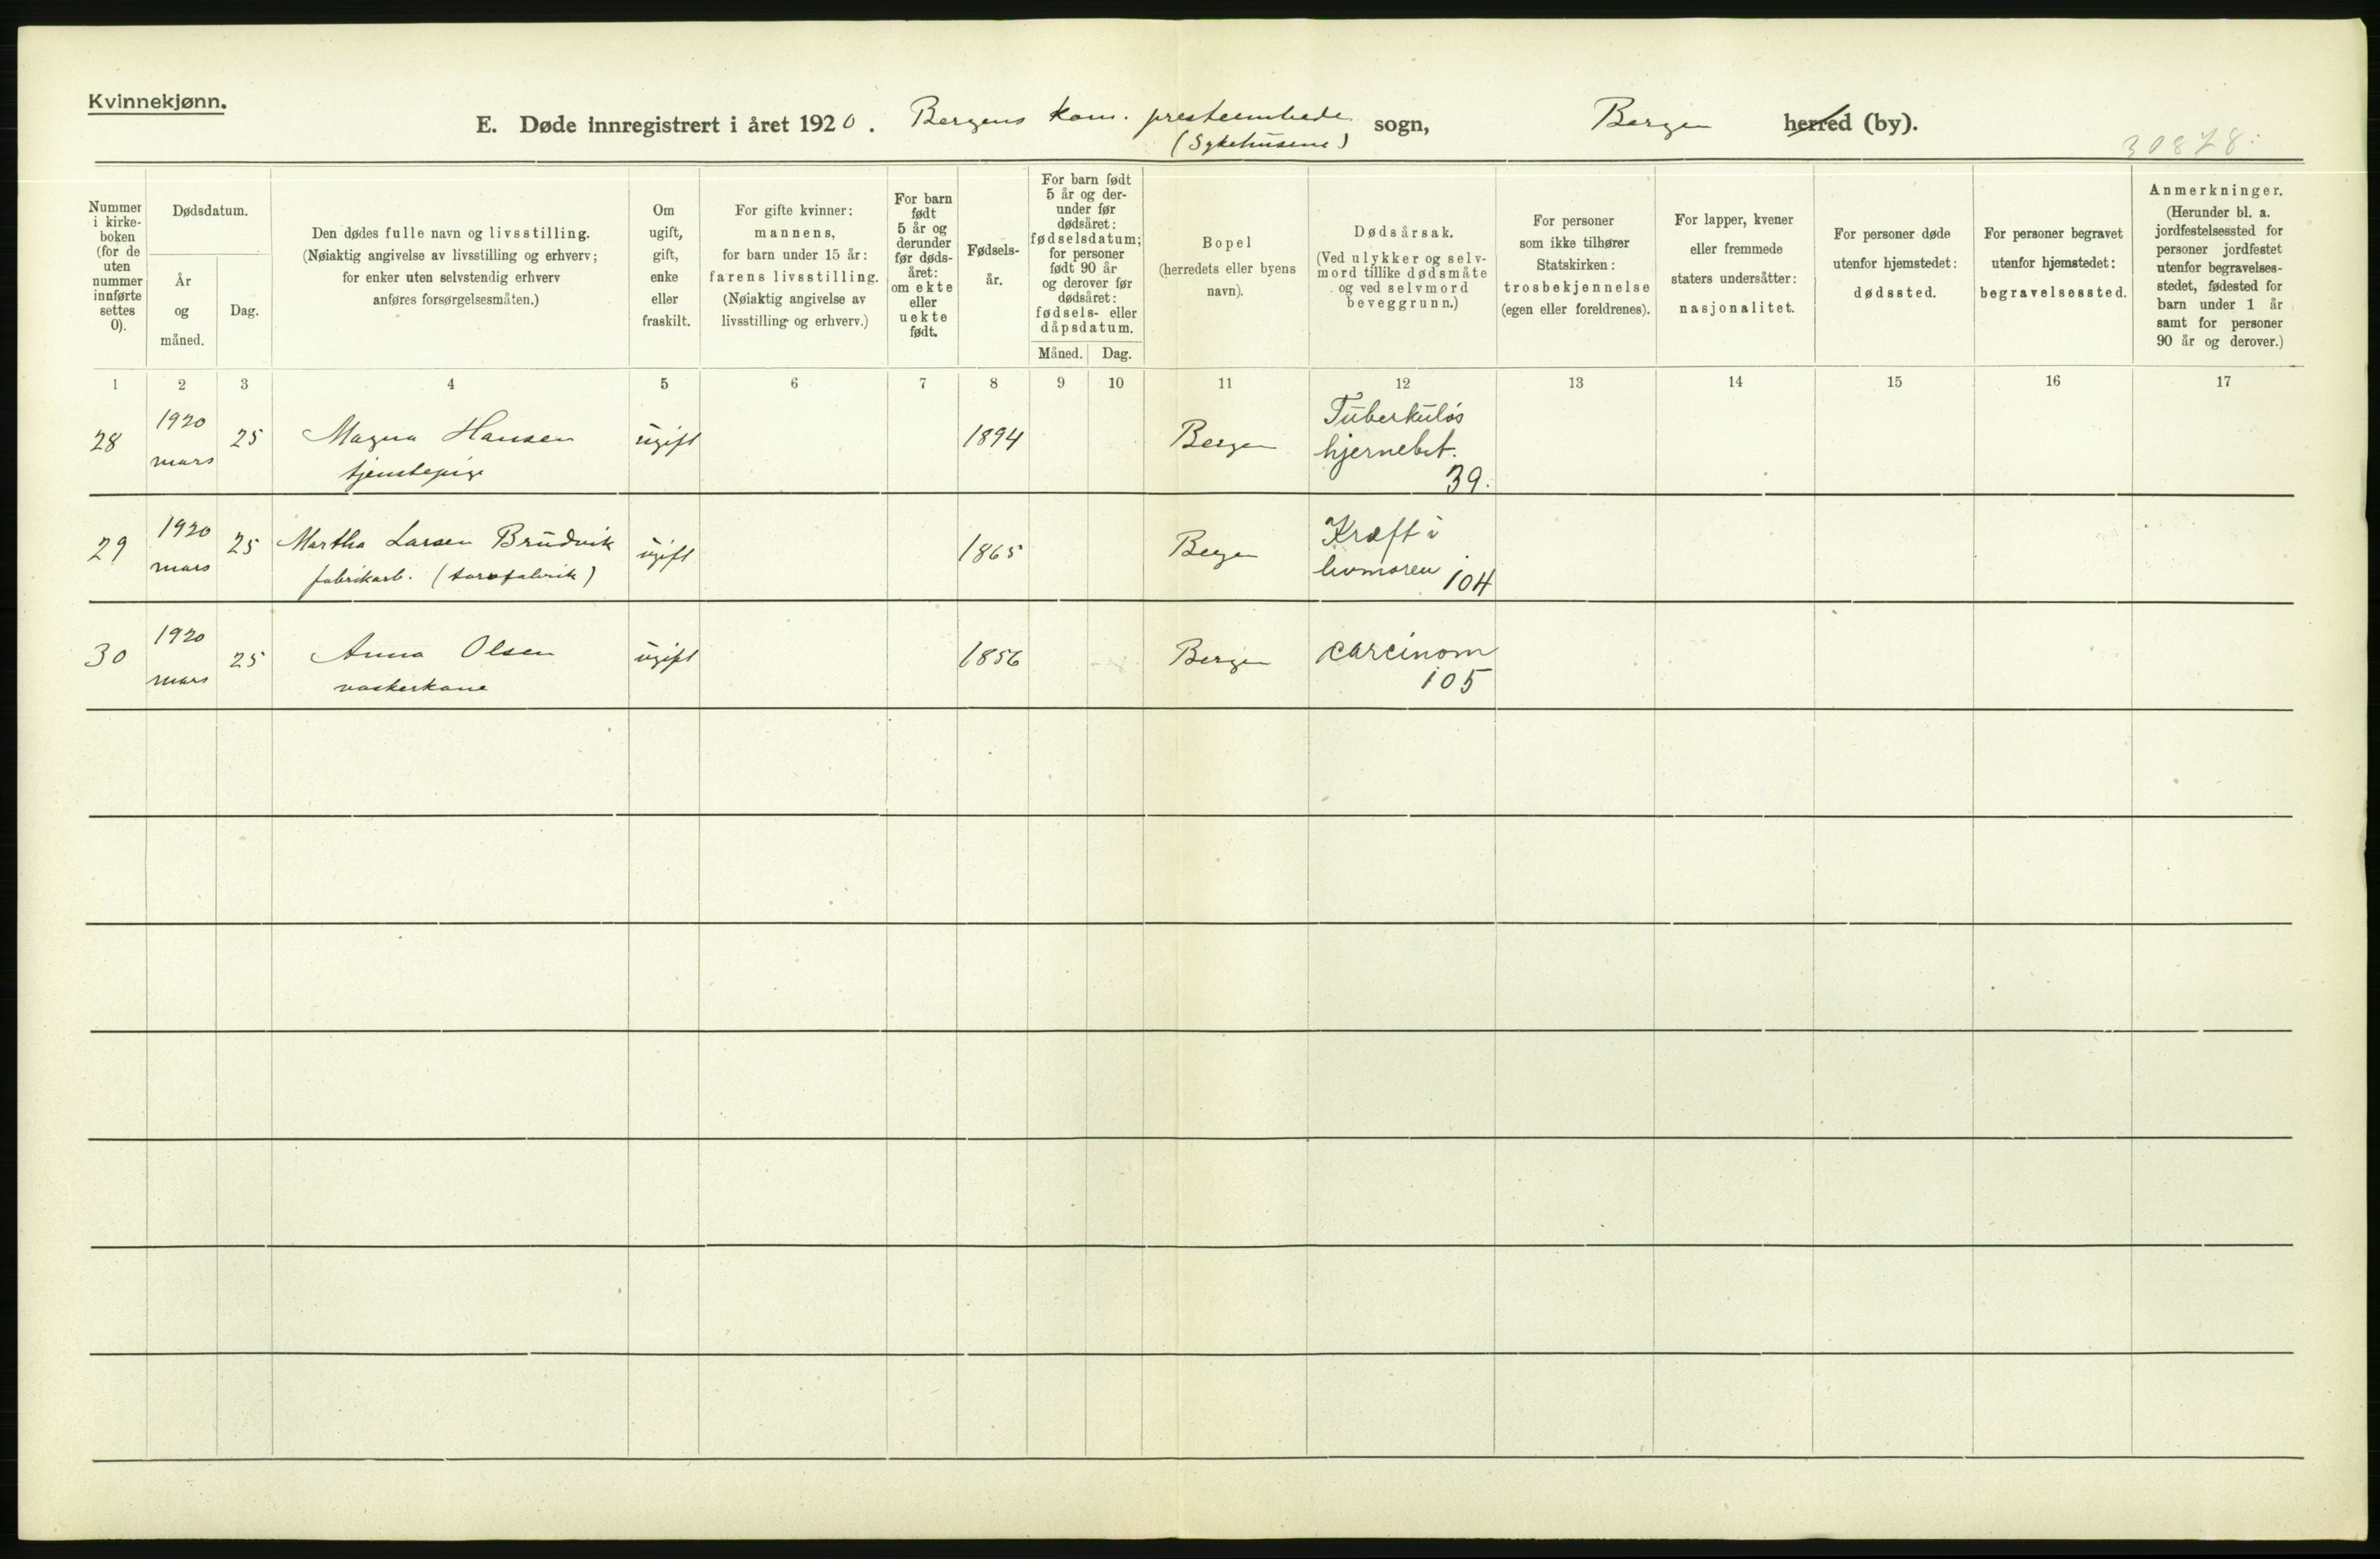 Kvinnekjønn.
E. Døde innregistrert i året 1920. Bergens kom. presteembede sogn, Bergen herred (by).
(Sykehusene)
30878.
Nummer i kirke-boken (for de uten nummer innførte settes 0).
Dødsdatum.
År og måned.
Dag.
Den dødes fulle navn og livsstilling.
(Nøiaktig angivelse av livsstilling og erhverv;
for enker uten selvstendig erhverv
anføres forsørgelsesmåten.)
Om
ugift,
gift,
enke
eller
fraskilt.
For gifte kvinner:
mannens,
for barn under 15 år:
farens livsstilling.
(Nøiaktig angivelse av
livsstilling og erhverv.)
For barn
født
5 år og
derunder
før døds-
året:
om ekte
eller
uekte
født.
Fødsels-
år.
For barn født
5 år og der-
under før
dødsåret:
fødselsdatum;
for personer
født 90 år
og derover før
dødsåret:
fødsels- eller
dåpsdatum.
Måned. Dag.
Bopel
(herredets eller byens
navn).
Dødsårsak.
(Ved ulykker og selv-
mord tillike dødsmåte
og ved selvmord
beveggrunn.)
For personer
som ikke tilhører
Statskirken:
trosbekjennelse
(egen eller foreldrenes).
For lapper, kvener
eller fremmede
staters undersåtter:
nasjonalitet.
For personer døde
utenfor hjemstedet:
dødssted.
For personer begravet
utenfor hjemstedet:
begravelsessted.
Anmerkninger.
(Herunder bl. a.
jordfestelsessted for
personer jordfestet
utenfor begravelses-
stedet, fødested for
barn under 1 år
samt for personer
90 år og derover.)
1 2 3 4 5 6 7 8 9 10 11 12 13 14 15 16 17
28 1920 mars 25 Magna Hansen ugift 1894 Bergen Tuberkuløs
tjenstepige hjernebet.
39.
29 1920 mars 25 Martha Larsen Brudvik ugift 1865 Bergen Kræft i
fabrikarb. livmoren 104
30 1920 mars 25 Anna Olsen ugift 1856 Bergen carcinom
vaskerkone 105